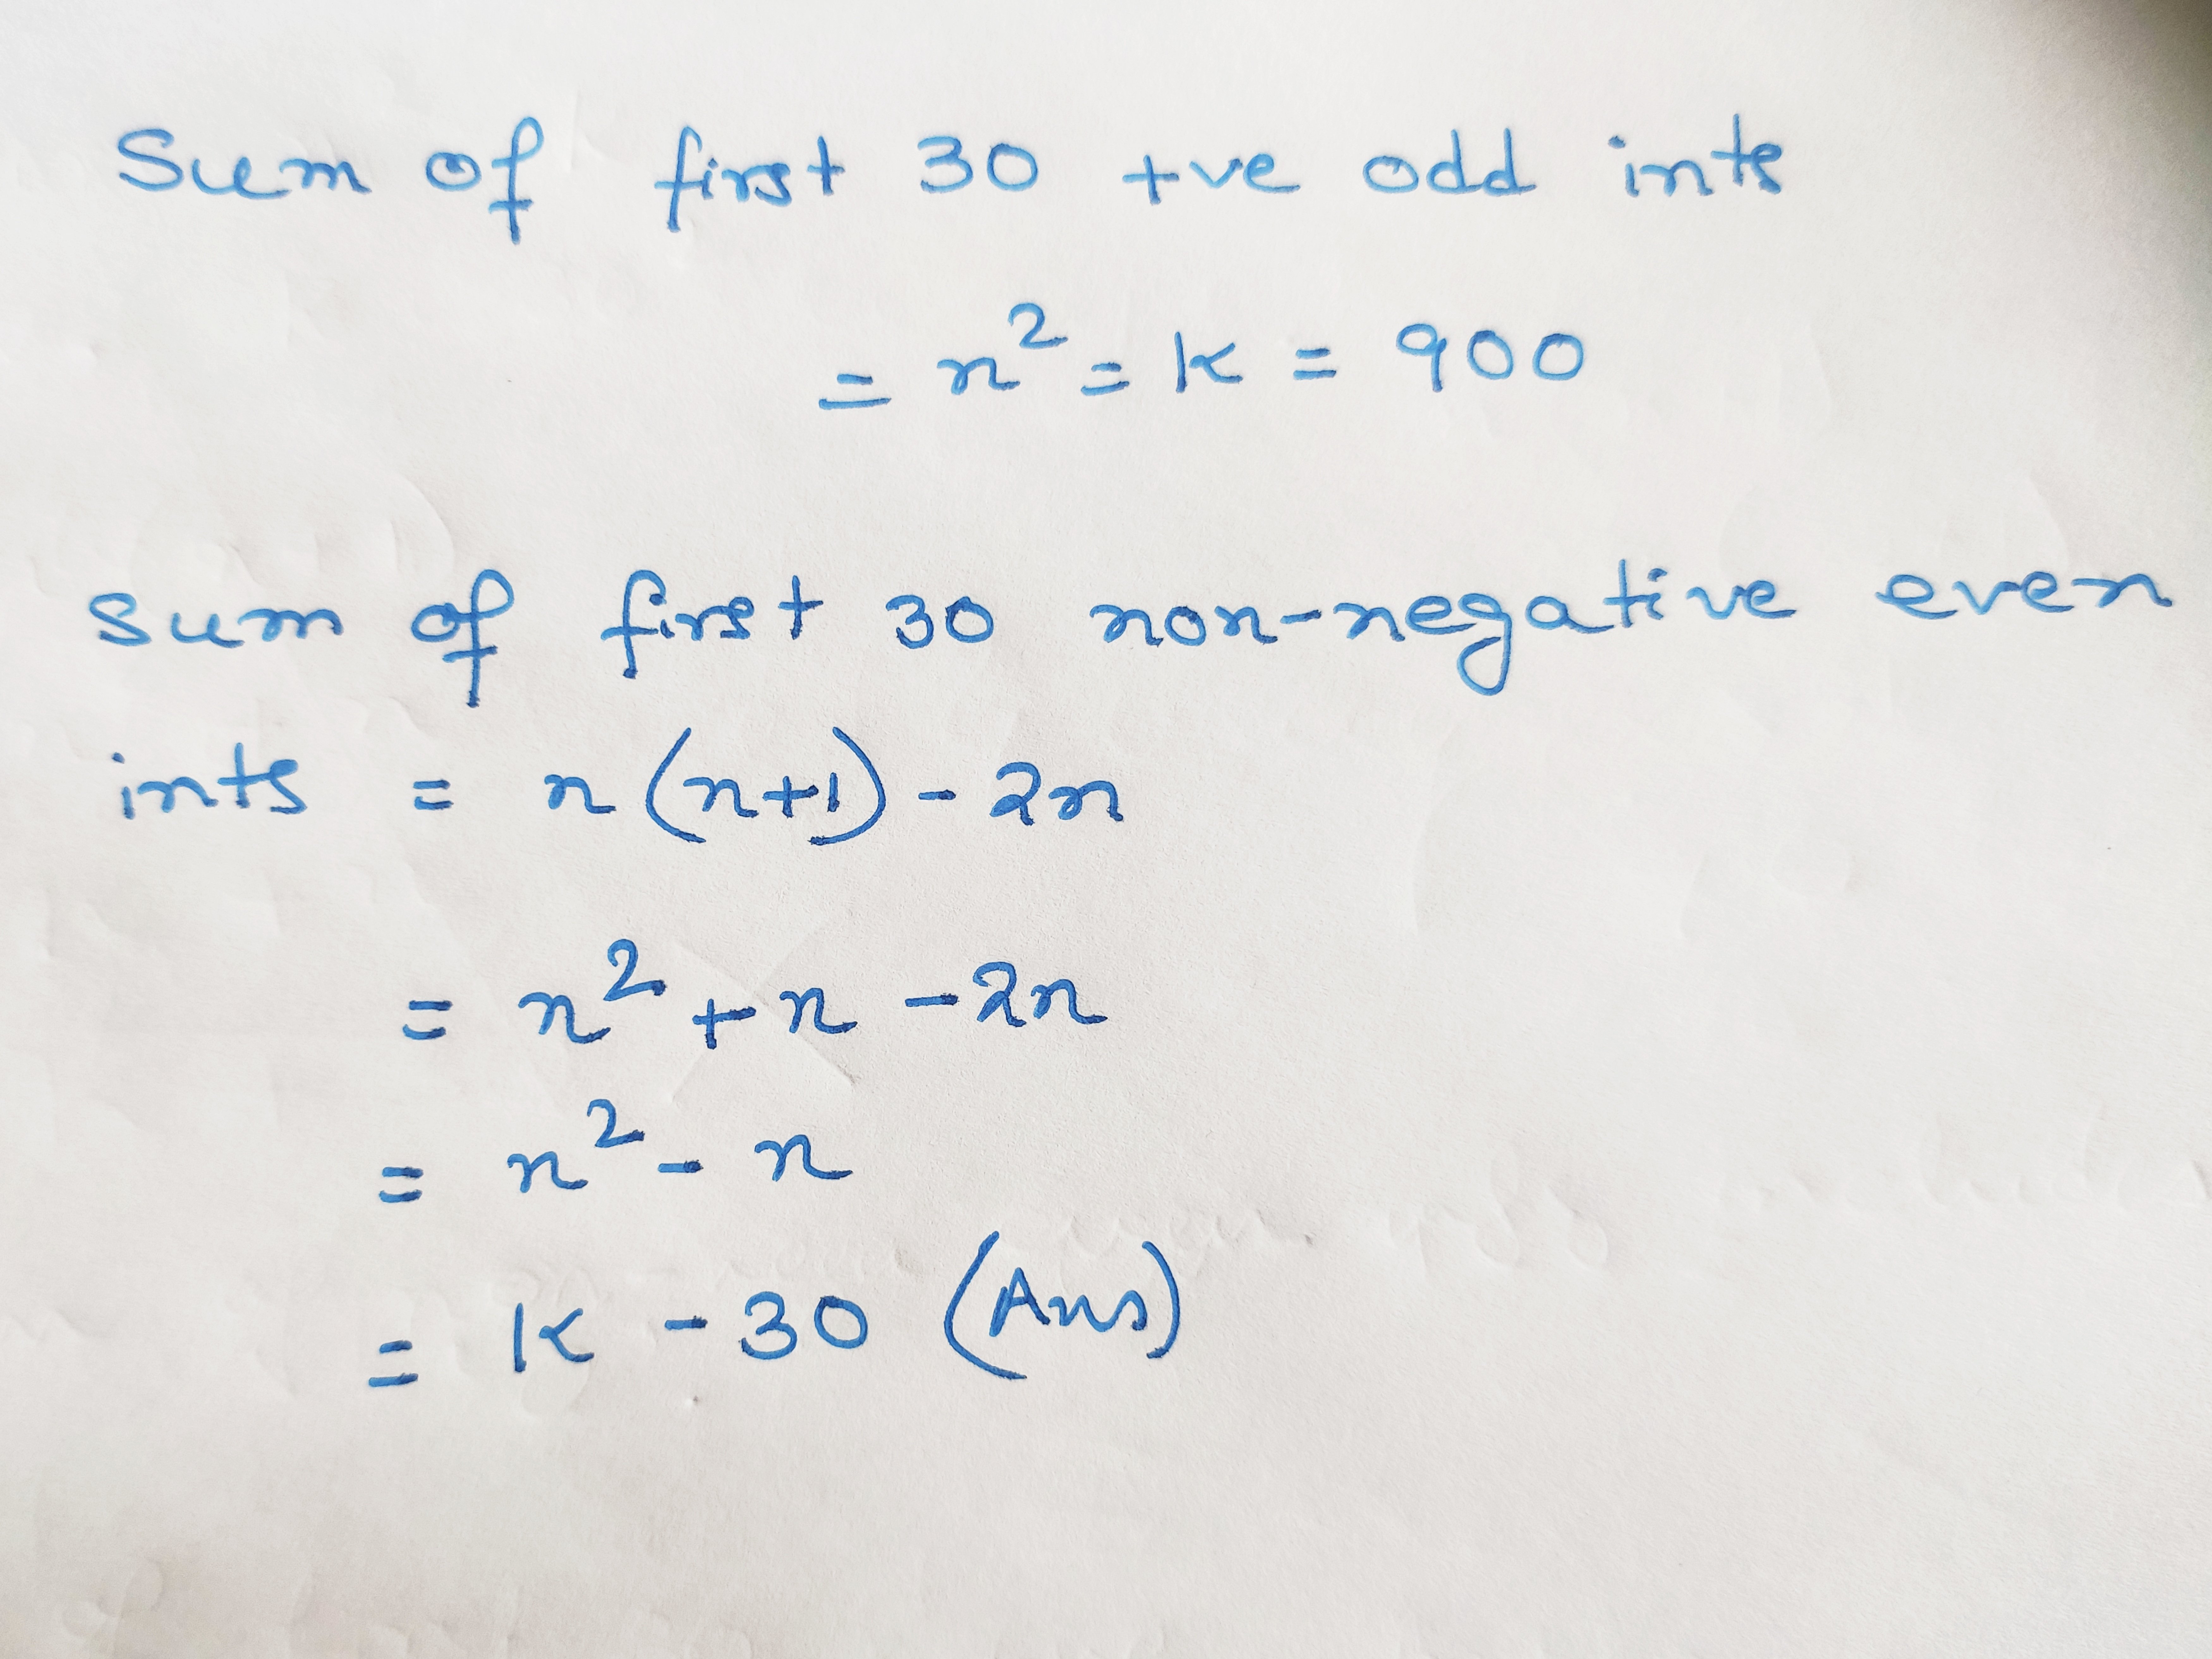 Sum of first 30 +ve odd ints
= n² = k = 900
Sum of first 30 non-negative even
ints = n(n+1) - 2n
= n² + n - 2n
= n² - n
= k - 30 (Ans)